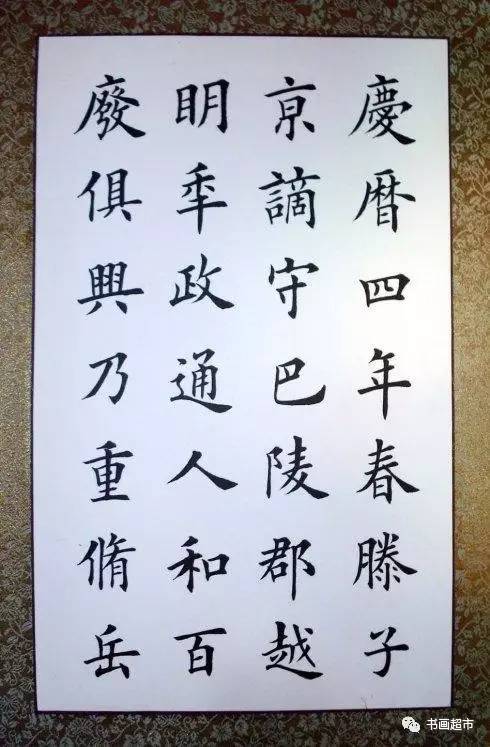 慶曆四年春滕子
京謫守巴陵郡越
明秊政通人和百
廢俱興乃重脩岳
书画超市